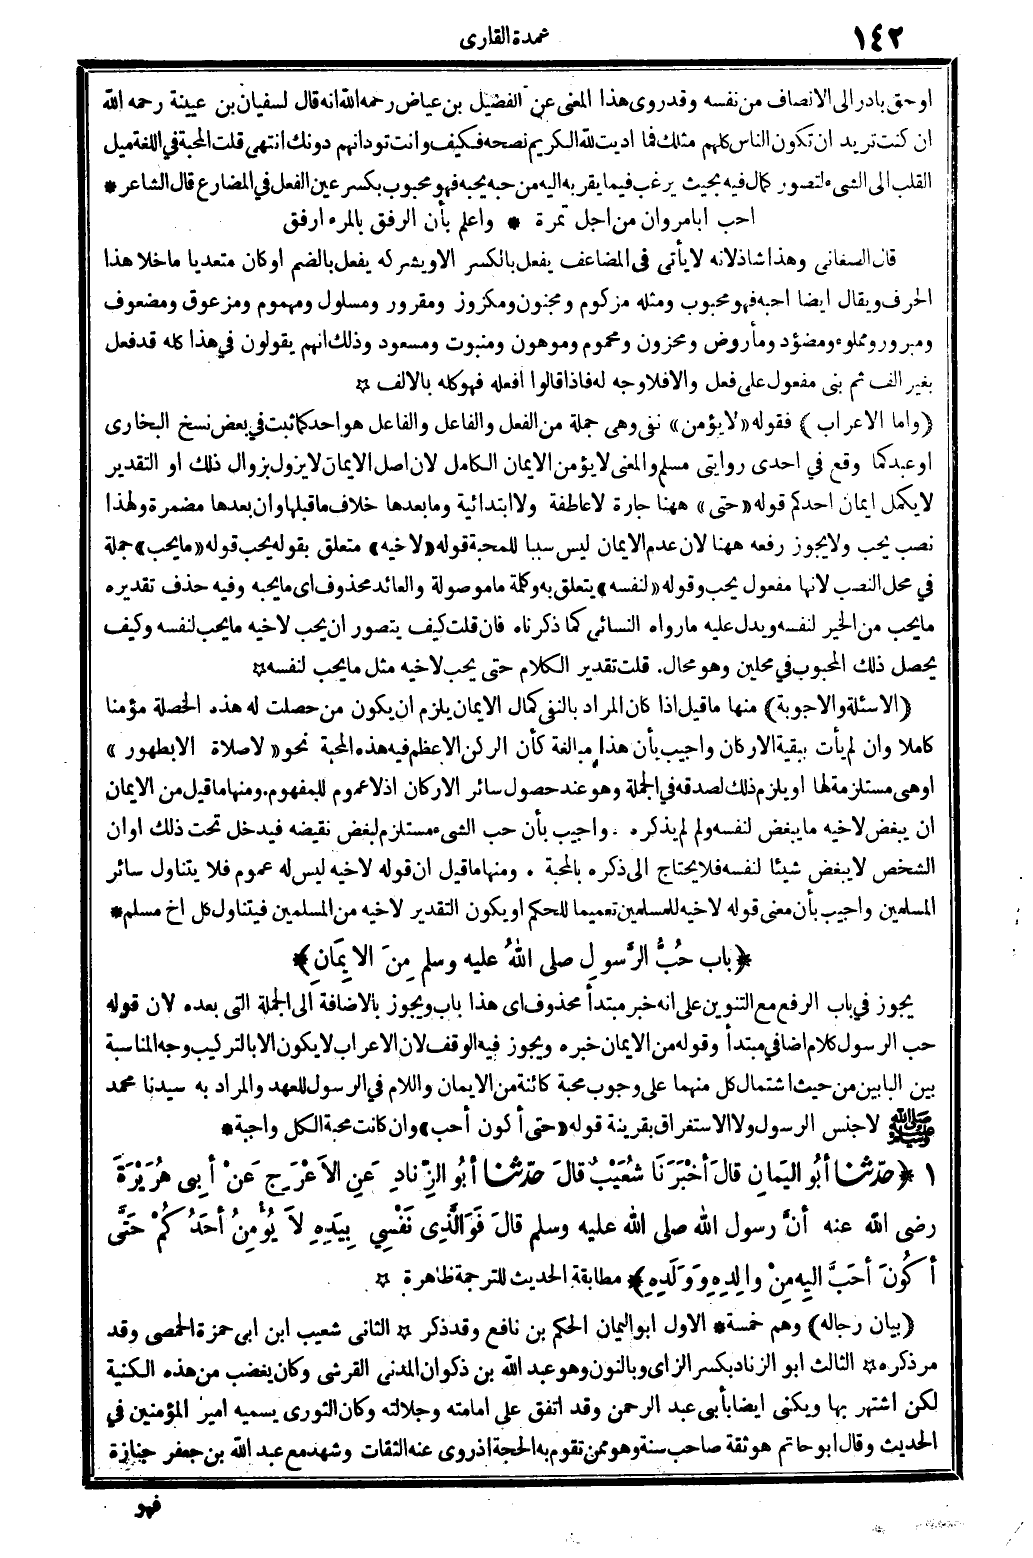 ١٤٢
عمدة القارى
اوحق بادر الى الانصاف من نفسه وقد روى هذا المعنى عن الفضيل بن عياض رحمه الله انه قال لسفيان بن عيينة رحمه الله
ان كنت تريد ان تكون الناس كلهم مثلك فما اديت لله الكريم نصحه فكيف وانت تود انهم دونك انتهى قلت المحبة فى اللغة ميل
القلب الى الشىء لتصور كمال فيه بحيث يرغب فيما يقربه اليه من حبه يحبه فهو محبوب بكسر عين الفعل فى المضارع قال الشاعر *
احب ابا مروان من اجل تمرة * واعلم بأن الرفق بالمرء ارفق
قال الصغانى وهذا شاذ لانه لا يأتى فى المضاعف يفعل بالكسر الا ويشركه يفعل بالضم او كان متعديا ما خلا هذا
الحرف ويقال ايضا احبه فهو محبوب ومثله مزكوم ومجنون ومكزوز ومقرور ومسلول ومهموم ومزعوق ومضعوف
ومبرور ومملوء ومضؤد ومأروض ومحزون ومحموم وموهون ومنبوت ومسعود وذلك انهم يقولون فى هذا كله قد فعل
بغير الف ثم بنى مفعول على فعل والا فلا وجه له فاذا قالوا افعله فهو كله بالالف ☆
(واما الاعراب) فقوله «لا يؤمن» نفى وهى جملة من الفعل والفاعل والفاعل هو احد كما ثبت فى بعض نسخ البخارى
او عبد كما وقع فى احدى روايتى مسلم والمعنى لا يؤمن الايمان الكامل لان اصل الايمان لا يزول بزوال ذلك او التقدير
لا يكمل ايمان احدكم قوله «حتى» ههنا جارة لا عاطفة ولا ابتدائية وما بعدها خلاف ما قبلها وان بعدها مضمرة ولهذا
نصب يحب ولا يجوز رفعه ههنا لان عدم الايمان ليس سببا للمحبة قوله «لاخيه» متعلق بقوله يحب قوله «ما يحب» جملة
فى محل النصب لانها مفعول يحب وقوله «لنفسه» يتعلق به وكلمة ما موصولة والعائد محذوف اى ما يحبه وفيه حذف تقديره
ما يحب من الخير لنفسه ويدل عليه ما رواه النسائى كما ذكرناه فان قلت كيف يتصور ان يحب لاخيه ما يحب لنفسه وكيف
يحصل ذلك المحبوب فى محلين وهو محال. قلت تقدير الكلام حتى يحب لاخيه مثل ما يحب لنفسه ☆
(الاسئلة والاجوبة) منها ما قيل اذا كان المراد بالنفى كمال الايمان يلزم ان يكون من حصلت له هذه الخصلة مؤمنا
كاملا وان لم يأت ببقية الاركان واجيب بأن هذا مبالغة كأن الركن الاعظم فيه هذه المحبة نحو «لا صلاة الا بطهور»
او هى مستلزمة لها او يلزم ذلك لصدقه فى الجملة وهو عند حصول سائر الاركان اذ لا عموم للمفهوم. ومنها ما قيل من الايمان
ان يبغض لاخيه ما يبغض لنفسه ولم لم يذكره . واجيب بأن حب الشىء مستلزم لبغض نقيضه فيدخل تحت ذلك او ان
الشخص لا يبغض شيئا لنفسه فلا يحتاج الى ذكره بالمحبة . ومنها ما قيل ان قوله لاخيه ليس له عموم فلا يتناول سائر
المسلمين واجيب بأن معنى قوله لاخيه للمسلمين تعميما للحكم او يكون التقدير لاخيه من المسلمين فيتناول كل اخ مسلم *
﴿باب حُبُّ الرَّسولِ صلى اللهُ عليه وسلم مِنَ الايمَانِ﴾
يجوز فى باب الرفع مع التنوين على انه خبر مبتدأ محذوف اى هذا باب ويجوز بالاضافة الى الجملة التى بعده لان قوله
حب الرسول كلام اضافى مبتدأ وقوله من الايمان خبره ويجوز فيه الوقف لان الاعراب لا يكون الا بالتركيب وجه المناسبة
بين البابين من حيث اشتمال كل منهما على وجوب محبة كائنة من الايمان واللام فى الرسول للعهد والمراد به سيدنا محمد
ﷺ لا جنس الرسول ولا الاستغراق بقرينة قوله «حتى أكون أحب» وان كانت محبة الكل واجبة *
١ ﴿حدّثنا أبُو اليَمانِ قالَ أخْبَرَنَا شُعَيْبٌ قالَ حدّثنا أبُو الزِّنادِ عَنِ الأَعْرَجِ عَنْ أبِى هُرَيْرَةَ
رضى الله عنه أنَّ رسول الله صلى الله عليه وسلم قالَ فَوَالَّذِى نَفْسِى بِيَدِهِ لاَ يُؤْمِنُ أحَدُكُمْ حَتَّى
أكُونَ أحَبَّ اليهِ مِنْ والِدِهِ وَوَلَدِهِ﴾ مطابقة الحديث للترجمة ظاهرة ☆
(بيان رجاله) وهم خمسة * الاول ابو اليمان الحكم بن نافع وقد ذكر ☆ الثانى شعيب ابن ابى حمزة الحمصى وقد
مر ذكره ☆ الثالث ابو الزناد بكسر الزاى وبالنون وهو عبد الله بن ذكوان المدنى القرشى وكان يغضب من هذه الكنية
لكن اشتهر بها ويكنى ايضا بأبى عبد الرحمن وقد اتفق على امامته وجلالته وكان الثورى يسميه امير المؤمنين فى
الحديث وقال ابو حاتم هو ثقة صاحب سنة وهو ممن تقوم به الحجة اذ روى عنه الثقات وشهد مع عبد الله بن جعفر جنازة
فهو